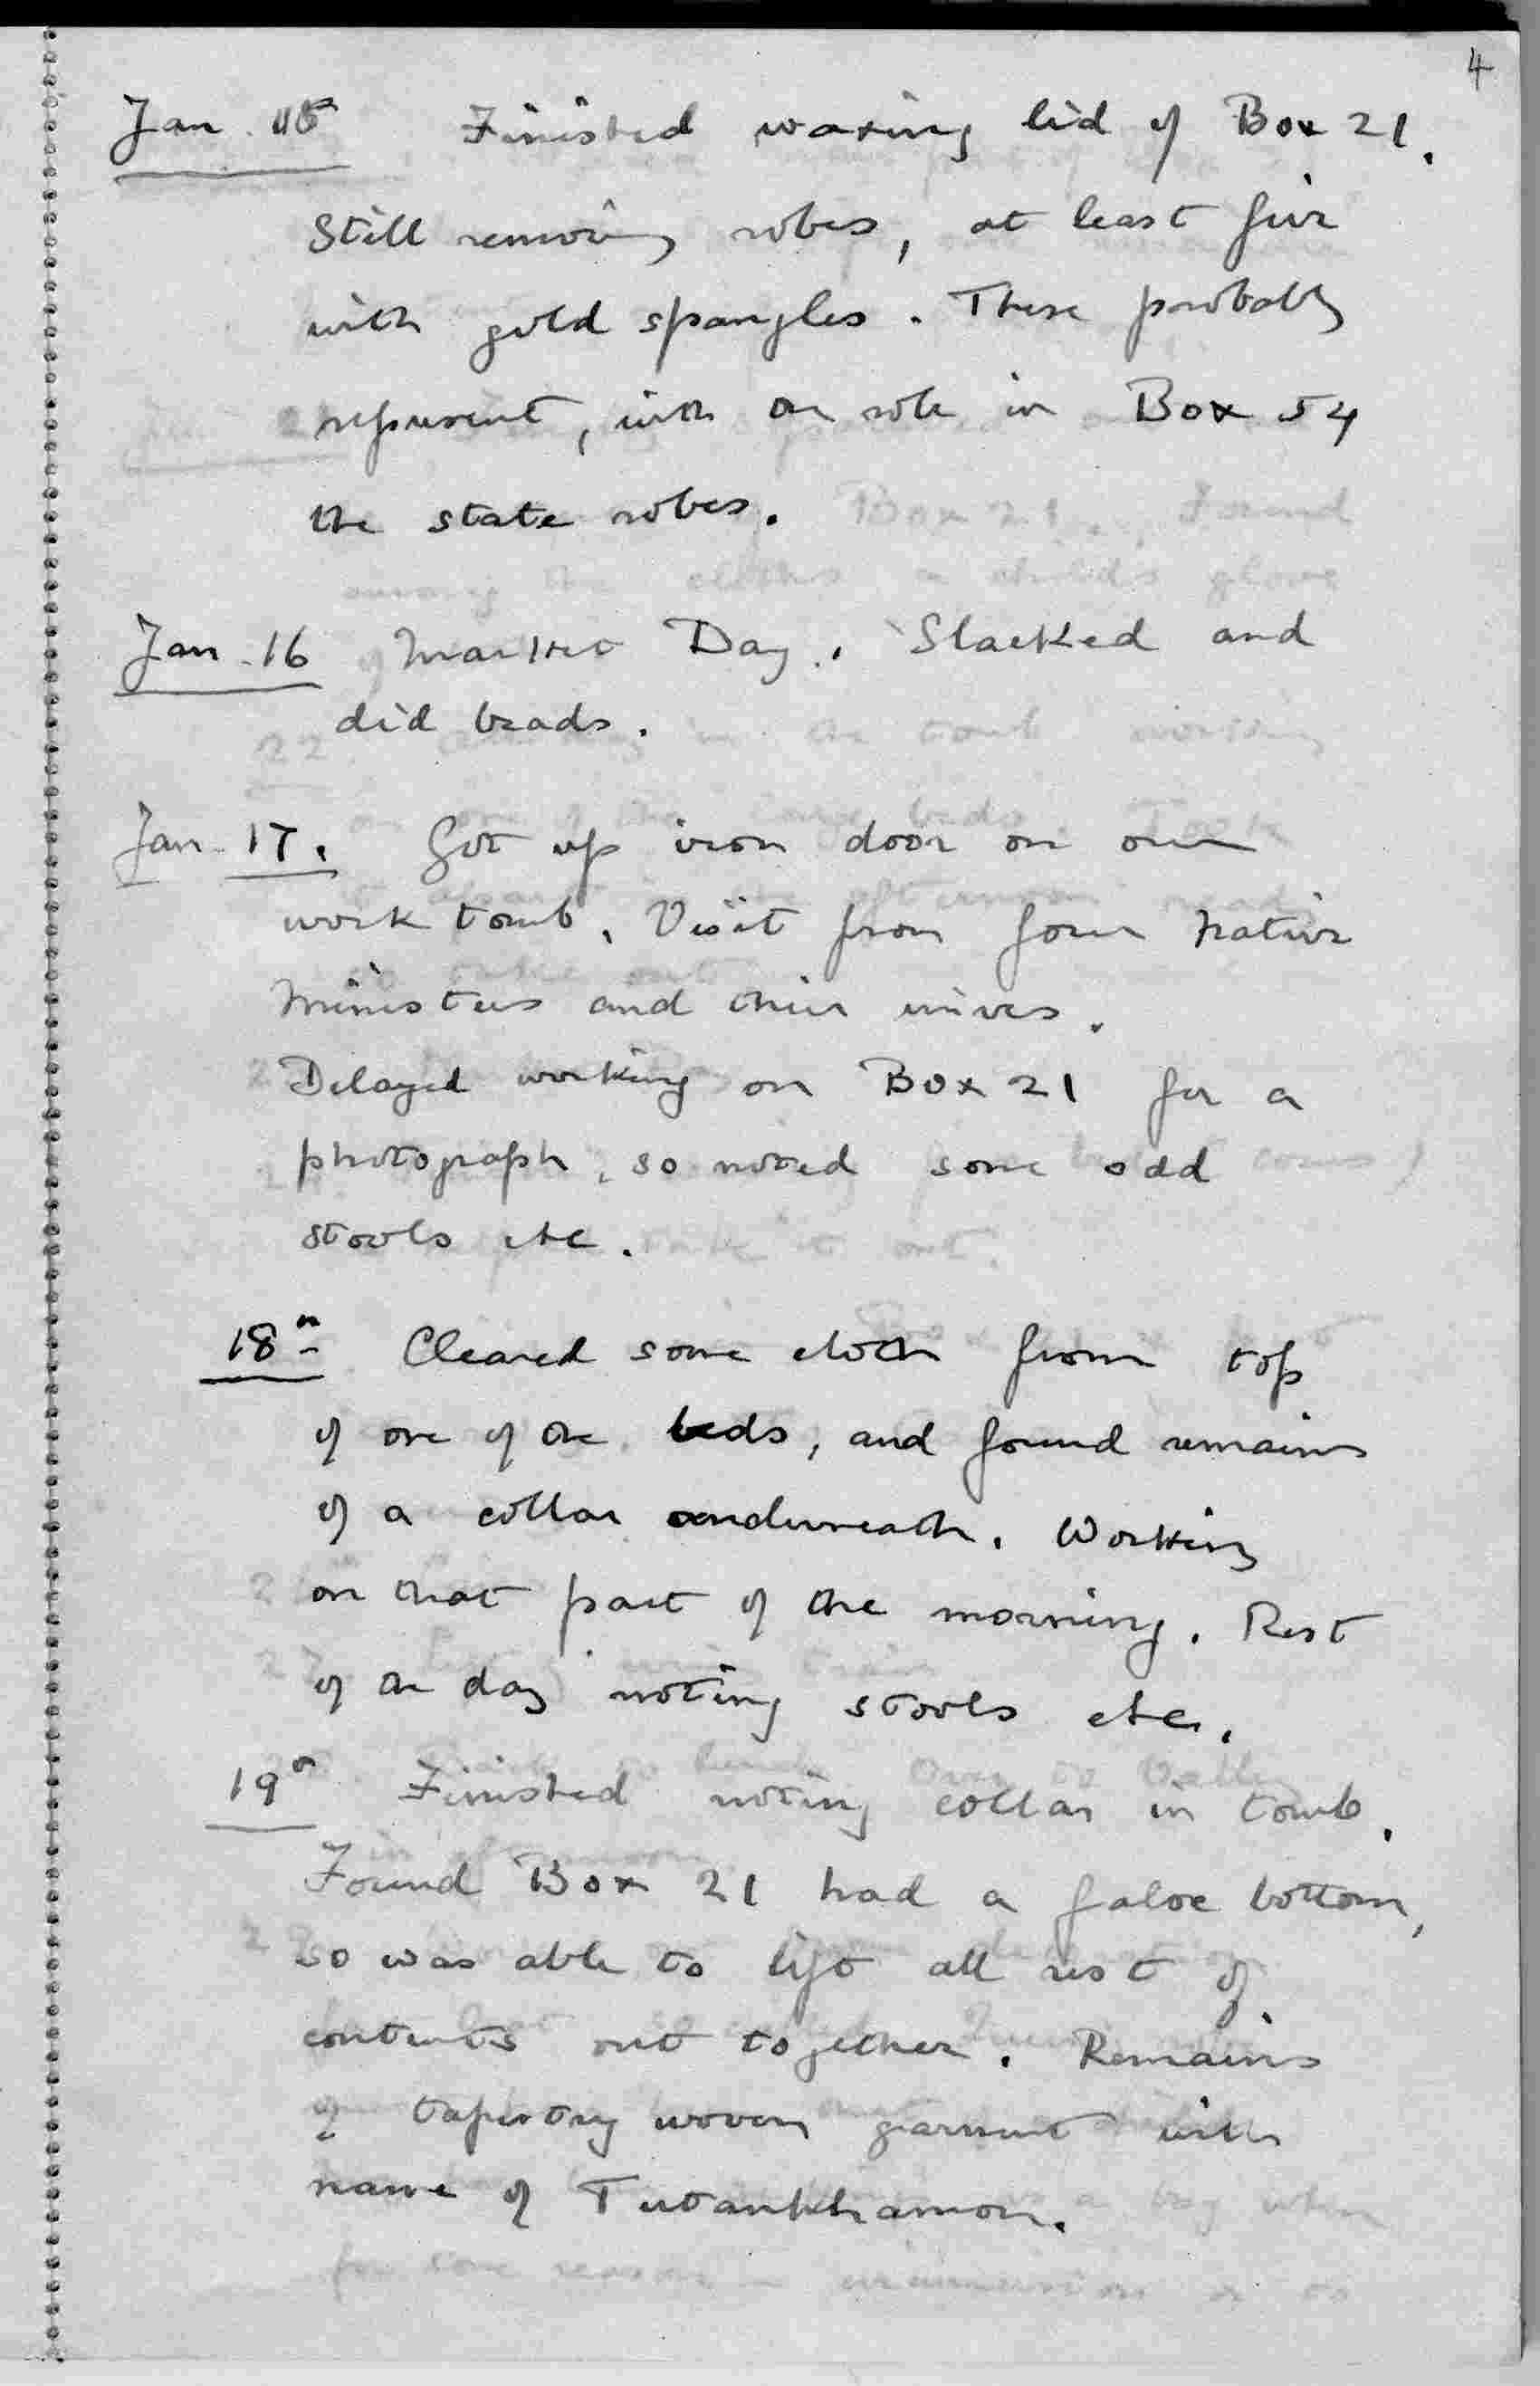 4
Jan. 15th Finished waxing lid of Box 21.
Still removing robes, at least five
with gold spangles. These probably
represent, with the robe in Box 54
the state robes.
Jan. 16 Market Day. Slacked and
did beads.
Jan. 17. Got up iron door on our
work tomb. Visit from four native
ministers and their wives.
Delayed working on Box 21 for a
photograph, so noted some odd
stools etc.
18th Cleared some cloth from top
of one of the beds, and found remains
of a collar underneath. Working
on that part of the morning. Rest
of the day noting stools etc.
19th Finished noting collar in tomb.
Found Box 21 had a false bottom,
so was able to lift all rest of
contents out together. Remains
of tapestry woven garment with
name of Tutankhamon.